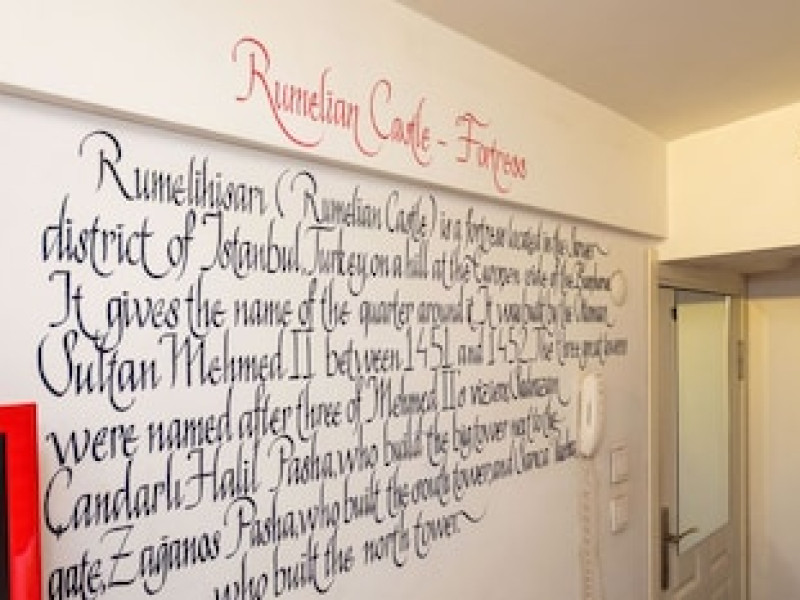 Rumelian Castle - Fortress
Rumelihisarı (Rumelian Castle) is a fortress located in the Sarıyer
district of Istanbul, Turkey, on a hill at the European side of the
It gives the name of the quarter around it. It was built by the Ottoman
Sultan Mehmed II between 1451 and 1452. The three great towers
were named after three of Mehmed II's viziers,
Çandarlı Halil Pasha, who build the big tower next to the
gate, Zağanos Pasha, who built the south tower, and Sarıca Pasha
who built the north tower.